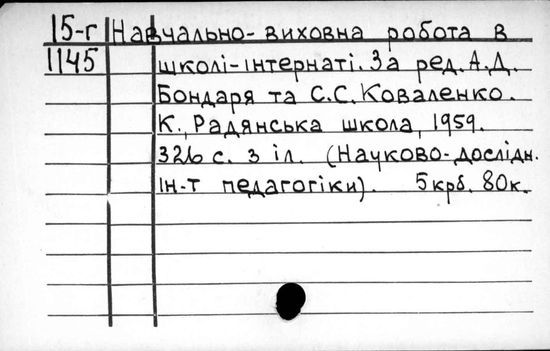 15-г Навчально-виховна робота в
1145 школі-інтернаті. За ред. А.Д.
Бондаря та С.С. Коваленко.
К., Радянська школа, 1959.
326 с. з іл. (Науково-дослідн.
ін-т педагогіки). 5 крб. 80 к.